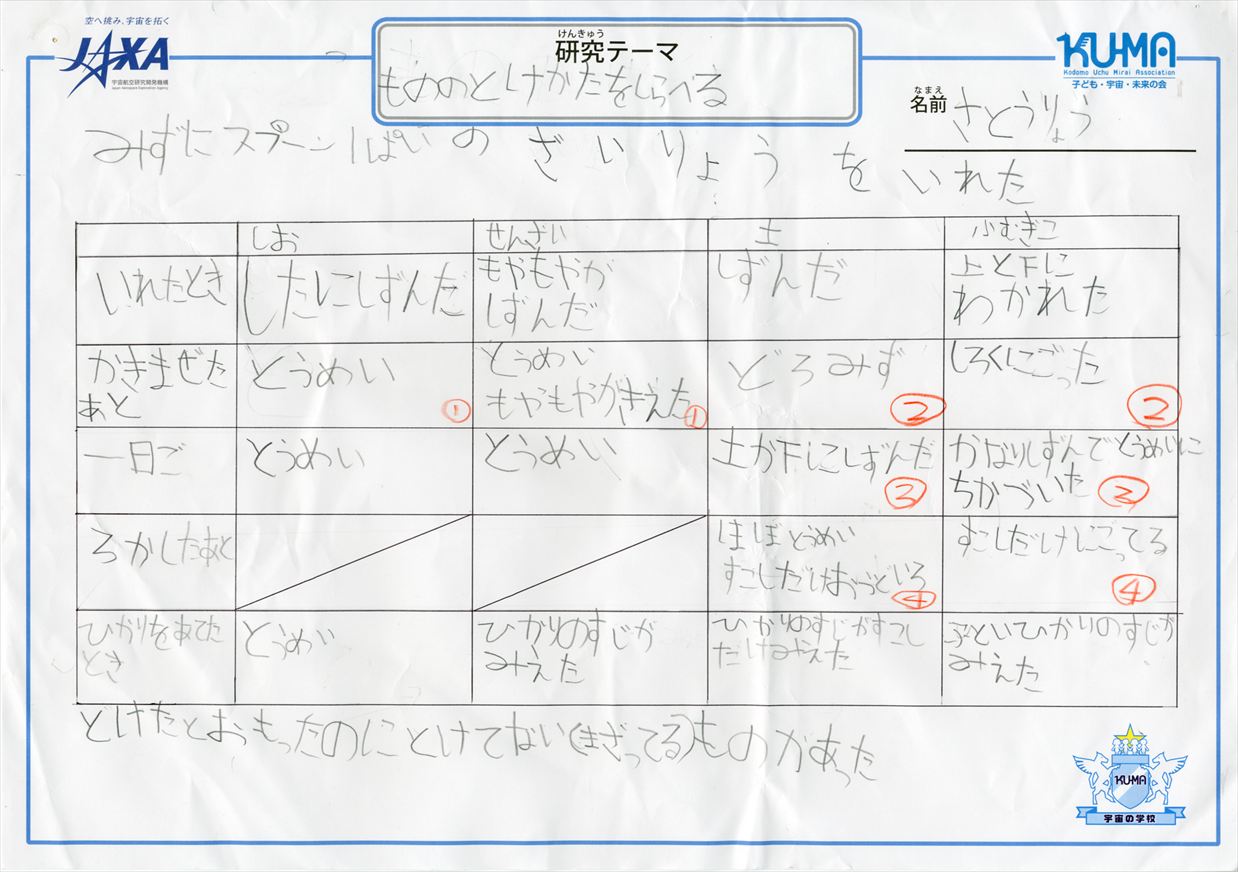 空へ挑み、宇宙を拓く
JAXA
宇宙航空研究開発機構
Japan Aerospace Exploration Agency
けんきゅう
研究テーマ
もののとけかたをしらべる
KU-MA
Kodomo Uchu Mirai Association
子ども・宇宙・未来の会
なまえ
名前 さとうりょう
みずにスプーン1ぱいのざいりょうをいれた
しお せんざい 土 こむぎこ
いれたとき したにしずんだ もやもやが しずんだ 上と下に
しずんだ わかれた
かきまぜた とうめい とうめい どろみず しろくにごった
あと ① もやもやがきえた ① ② ②
一日ご とうめい とうめい 土が下にしずんだ かなりしずんでとうめいに
③ ちかづいた ③
ろかしたあと ほぼとうめい すこしだけにごってる
すこしだけおうどいろ ④ ④
ひかりをあてた とうめい ひかりのすじが ひかりのすじがすこし ふといひかりのすじが
とき みえた だけみえた みえた
とけたとおもったのにとけてない(まざってる)ものがあった
KU-MA
宇宙の学校